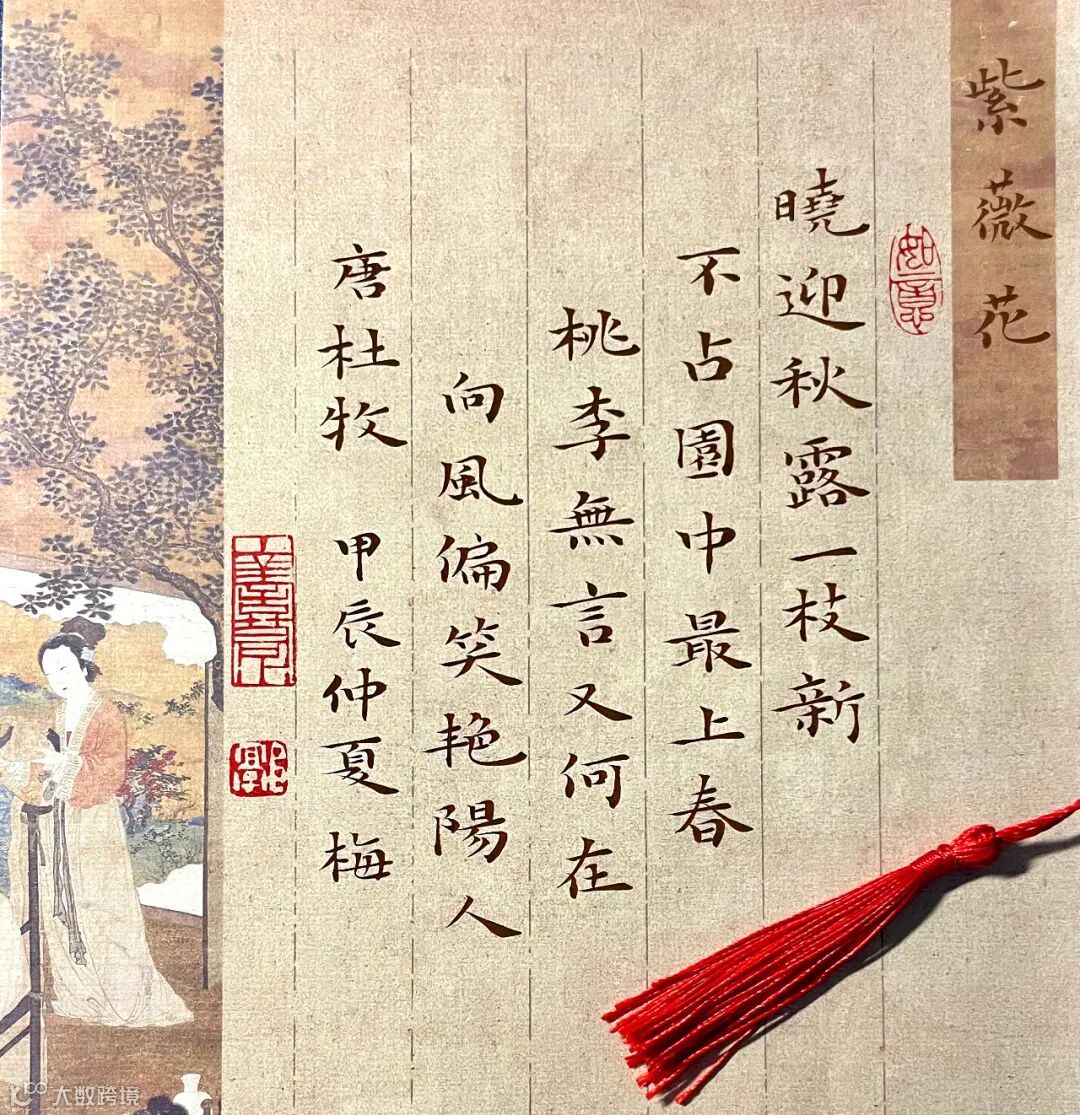 紫薇花
如意
曉迎秋露一枝新
不占園中最上春
桃李無言又何在
向風偏笑艳陽人
唐杜牧 甲辰仲夏 梅
大数跨境